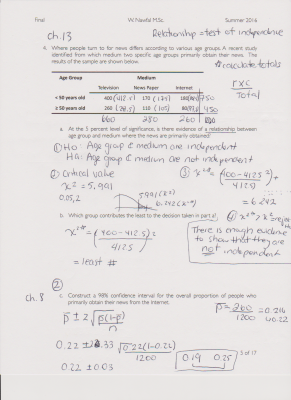 Final W. Nawful M.Sc. Summer 2016
Ch.13 Relationship = test of independence
Where people turn to for news differs according to various age groups. A recent study
identified from which medium two specific age groups primarily obtain their news. The
results of the sample are shown below.
* calculate totals
Age Group Medium
Television News Paper Internet
< 50 years old 400 170 750
≥ 50 years old 260 110 450
660 280 260
r x c
Total
a. At the 5 percent level of significance, is there evidence of a relationship between
age group and medium where the news are primarily obtained?
① Ho: Age group & medium are independent
Ha: Age group & medium are not independent
② Critical value
x² = 5.991
0.05, 2
5.991 (x²)
③ x²* = (400-412.5)² +
412.5
= 6.242
b. Which group contributes the least to the decision taken in part a)
x²* = (400-412.5)²
412.5
= least #
④ x²* > x²
There is enough evidence
to show that they are
not independent
②
Ch. 8
c. Construct a 98% confidence interval for the overall proportion of people who
primarily obtain their news from the internet.
p̄ ± z √p̄(1-p̄)
n
p̄ = 260 = 0.216
1200 ≈0.22
0.22 ± 2.33 √0.22(1-0.22)
1200
0.22 ± 0.03
0.19 0.25
of 17